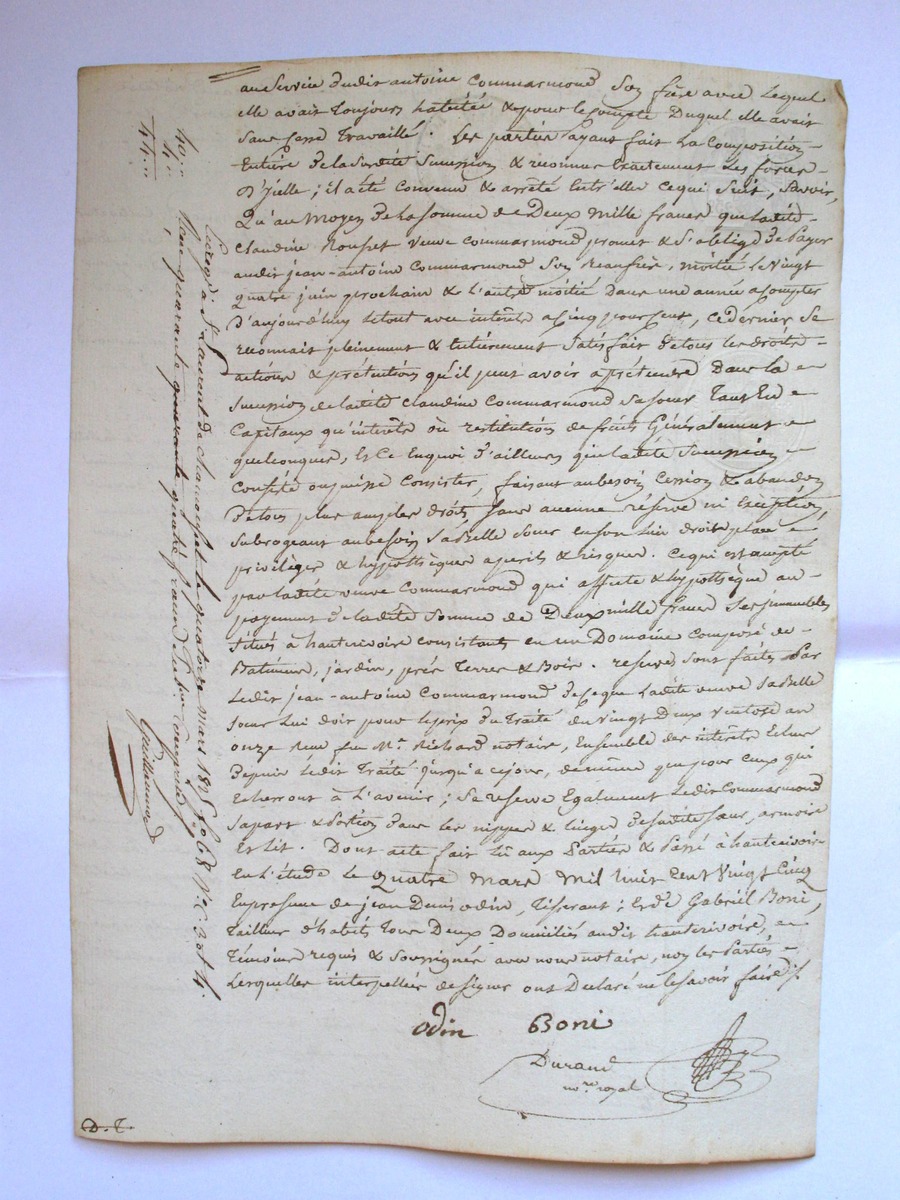 au Service dudit antoine Commarmond Son frère avec Lequel
elle avait Toujours habitée & pour le compte Duquel elle avait
Sans Cesse Travaillé. Les parties ayant fait La Composition
Entière de la Susdite Succession & reconnu Exactement Les forces
D'Icelle; il a été convenu & arrêté Entr'elles ce qui Suit, Savoir,
Qu'au Moyen de la somme de Deux Mille francs que ladite
Claudine Rousset veuve Commarmond promet & S'oblige de Payer
audit jean-antoine Commarmond Son Beaufrère, moitié le Vingt
quatre juin prochain & L'autre moitié Dans une année a compter
D'aujourd'huy le tout avec intérêts a Cinq pour cent, ce dernier Se
reconnait pleinement & Entièrement Satisfait de tous les droits
actions & prétentions qu'il peut avoir a prétendre Dans la
Succession de ladite Claudine Commarmond Sa soeur Tant En
Capitaux qu'intérêts ou restitution de fruits Généralement
quelconques, Et Ce Enquoi D'ailleurs que ladite Succession
Consiste ou puisse Consister, faisant au besoin Cession & abandon
De tous plus amples droits, Sans aucune réserve ni Exception,
Subrogeant au besoin Sa Belle Soeur En son Lieu droit place
privilèges & hypothèques a perils & risques. Ce qui est accepté
par ladite veuve Commarmond qui affecte & hypothèque au
payement de ladite Somme de Deux mille francs Ses immeubles
Situés à hauterivoire consistants en un Domaine Composé de
Batiments, jardin, prés Terres & Bois. reserve sont faites Par
Ledit jean-antoine Commarmond de ce que Ladite veuve Sa Belle
Soeur Lui doit pour le prix du Traité du vingt Deux ventose an
onze reçu feu Me. Richard notaire, Ensemble des intérêts Echus
Depuis Ledit Traité jusqu'a ce jour, de même que pour ceux qui
Echerront à L'avenir; Se reserve Egalement Ledit Commarmond
Sa part & Portion dans les nippes & linges de sadite Soeur, armoire
Et Lit. Dont acte fait Lu aux Parties & Passé à hauterivoire
En L'étude Le quatre Mars Mil huit Cent Vingt Cinq
En presence de jean Denis odin, Tisserant; Et de Gabriel Boni,
Tailleur d'habits Tous Deux Domiciliés audit hauterivoire,
Témoins requis & Soussignés avec nous notaire, non les Parties
Lesquelles interpellées de signer ont Declaré ne le savoir faire ./.
odin Boni
Durand
nore. royal
D. T.
40 "
4 "
44 "
Enreg. à St. Laurent de Chamousset le quatorze Mars 1825 fo 68 Vo C. 3 et 4.
Reçu quarante quatre francs compris
Guillermond